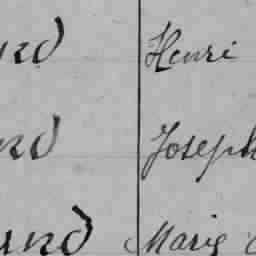 nd Henri
nd Joseph
und Marie